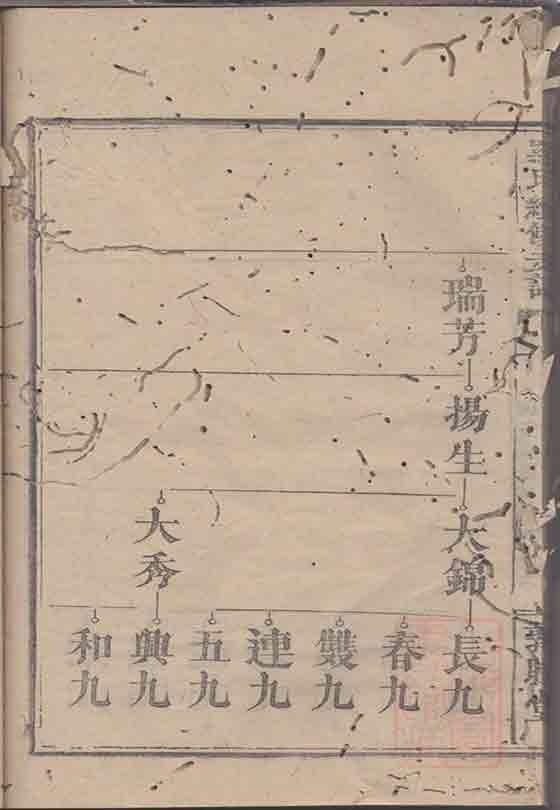 瑞芳
揚生
大錦
大秀
長九
春九
雙九
連九
五九
興九
和九